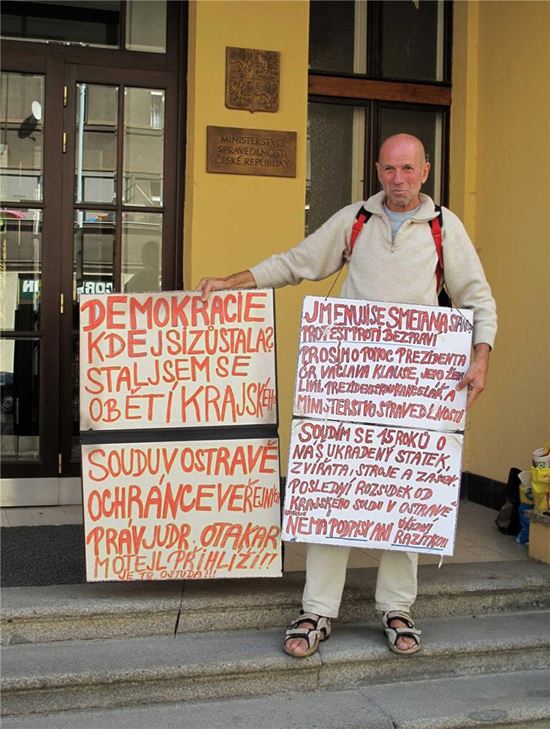 MINISTERSTVO
SPRAVEDLNOSTI
ČESKÉ REPUBLIKY
DEMOKRACIE
KDE JSI ZŮSTALA?
STAL JSEM SE
OBĚTÍ KRAJSKÉHO
SOUDU V OSTRAVĚ
OCHRÁNCE VEŘEJNÝCH
PRÁV JUDR. OTAKAR
MOTEJL PŘIHLÍŽÍ!!
JE TO OSTUDA!!!
JMENUJI SE SMETANA
PROTEST PROTI BEZPRAVÍ
PROSÍM O POMOC PREZIDENTA
ČR VÁCLAVA KLAUSE, JEHO ŽENU
LIVII, PREZIDENTSKOU KANCELÁŘ A
MINISTERSTVO SPRAVEDLNOSTI
SOUDÍM SE 15 ROKŮ O
NÁŠ UKRADENÝ STATEK,
ZVÍŘATA, STROJE A ZÁSOBY
POSLEDNÍ ROZSUDEK OD
KRAJSKÉHO SOUDU V OSTRAVĚ
NEMÁ PODPISY ANI
RAZÍTKO!!